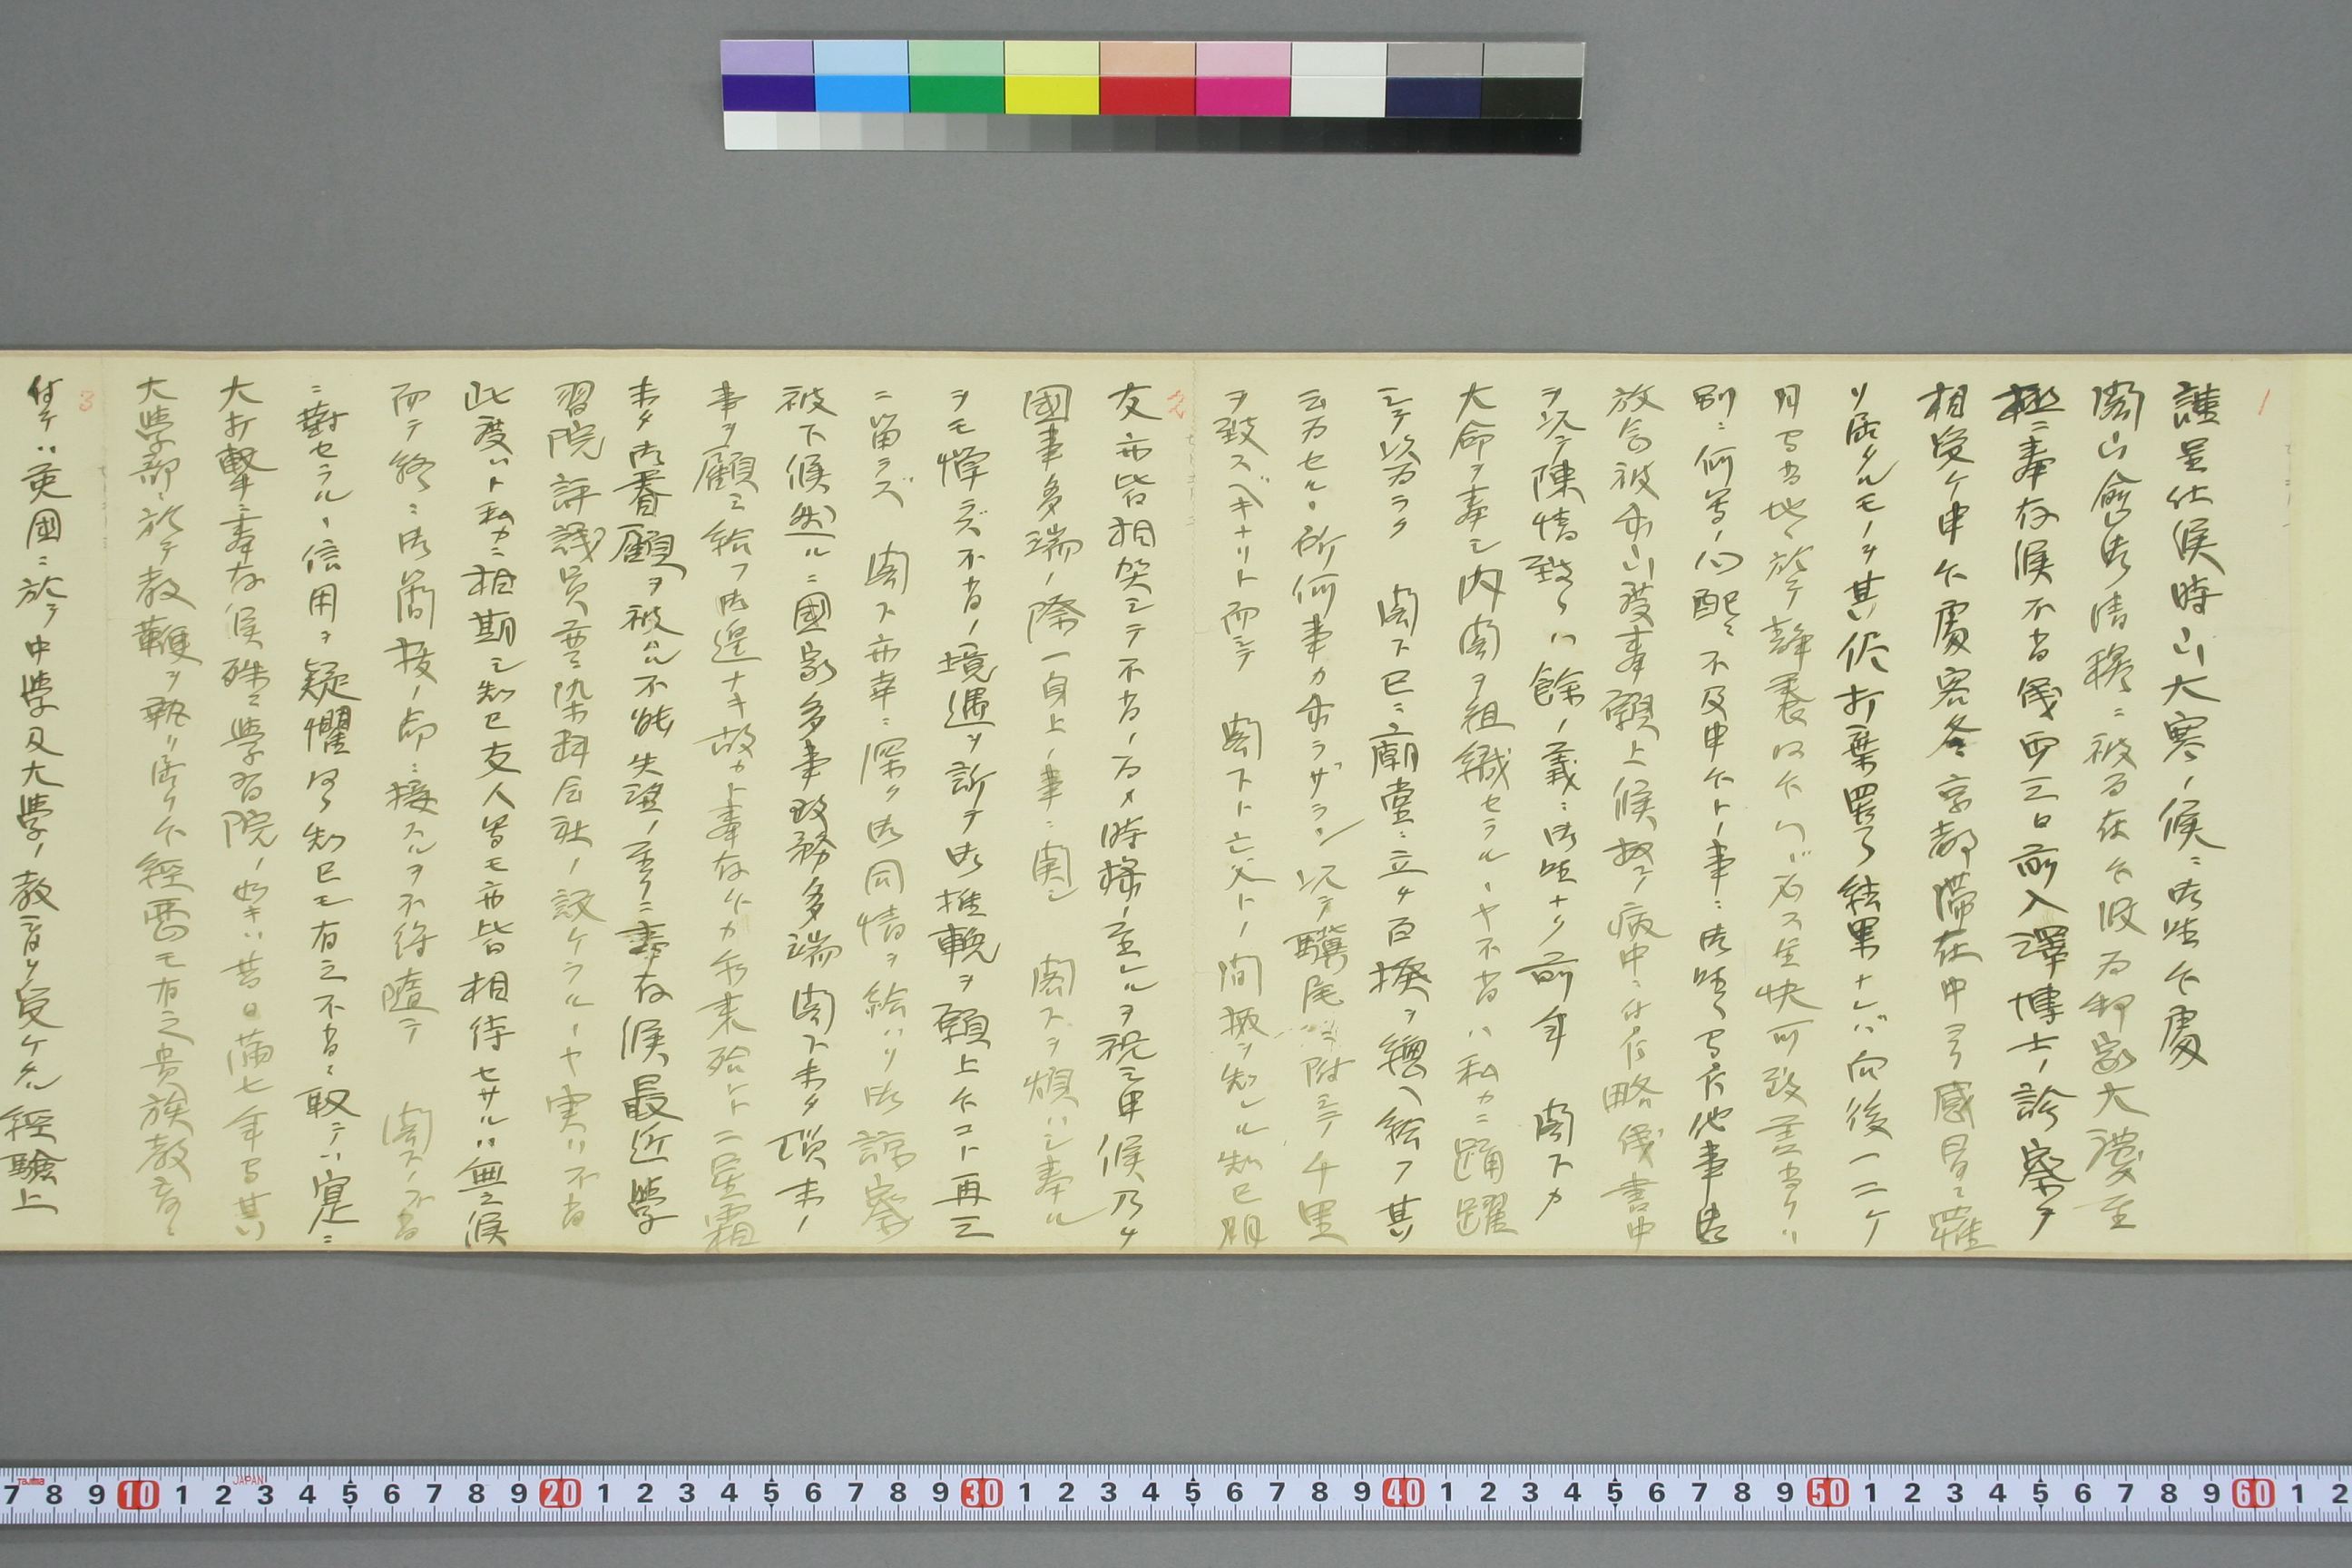 1
謹呈仕候時下大寒ノ候ニ御座候處
閣下愈御清穆ニ被為在候段為邦家大慶至
極ニ奉存候不肖儀両三日前入澤博士ノ診察ヲ
相受ケ申候處客冬京都滞在中ヨリ感冒ニ罹
リ居タルモノヲ其侭打棄置ク結果ナレバ向後一二ケ
月間当地ニ於テ静養
別ニ何等ノ心配ニ不及申候トノ事ニ御座候間乍他事御
放念被下度奉願上候扨テ病中ニ付乍略儀書中
ヲ以テ陳情致候ハ餘ノ義ニ御座ナク前年 閣下カ
大命ヲ奉シ内閣ヲ組織セラルヽヤ不肖ハ私カニ踊躍
シテ以為ラク 閣下已ニ廟堂ニ立チ百揆ヲ總ヘ給フ其
云為セルヽ所何事カ成ラザラン以テ驥尾ニ附シテ千里
ヲ致スベキナリト而シテ 閣下ト亡父トノ間柄ヲ知レル知己朋
2
友亦皆相賀シテ不肖ノ為メ時機ノ至レルヲ祝シ申候乃チ
國事多端ノ際一身上ノ事ニ関シ 閣下ヲ煩ハシ奉ル
ヲモ憚ラズ不肖ノ境遇ヲ訴ヘテ御推輓ヲ願上候コト再三
ニ留ラズ 閣下亦幸ニ深ク御同情ヲ給ハリ御諒察
被下候然ルニ國家多事政務多端閣下未タ瑣末ノ
事ヲ顧ミ給フ御遑ナキ故カト奉存候カ爾来殆ント二星霜
未タ御眷顧ヲ被ル不能失望ノ至リニ奉存候最近學
習院評議員並ニ染料会社ノ設ケラルヽヤ実ハ不肖
此度ハト私カニ相期シ知己友人等モ亦皆相待セサルハ無之候
而テ終ニ御簡拔ノ命ニ接スルヲ不得隨テ 閣下ノ不肖
ニ對セラルヽ信用ヲ疑懼スル知己モ有之不肖ニ取テハ寔ニ
大打撃ニ奉存候殊ニ學習院ノ如キハ昔日満七年間其
大學部ニ於テ教鞭ヲ執リ居リ候經歷モ有之貴族教育ニ
3
付テハ英國ニ於テ中學及大學ノ教育ヲ受ケタル經驗上